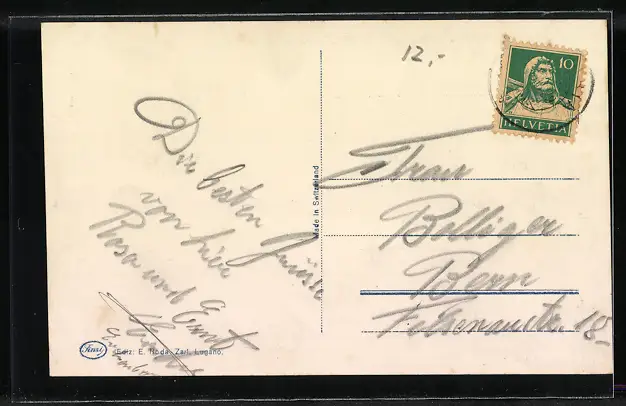 12,-
10
HELVETIA
Die besten Grüsse
von hier
Rosa und Ernst
Made in Switzerland
Frau
Bolliger
Bern
18
Ediz: E. Noda. Zarl, Lugano.